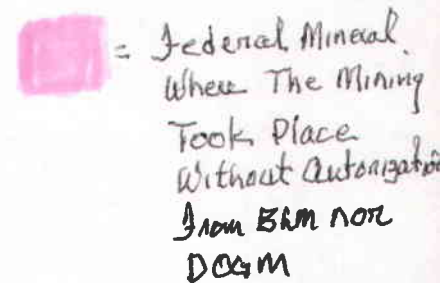 = Federal Mineral
Where The Mining
Took Place
Without Autorization
From BLM nor
DOGM